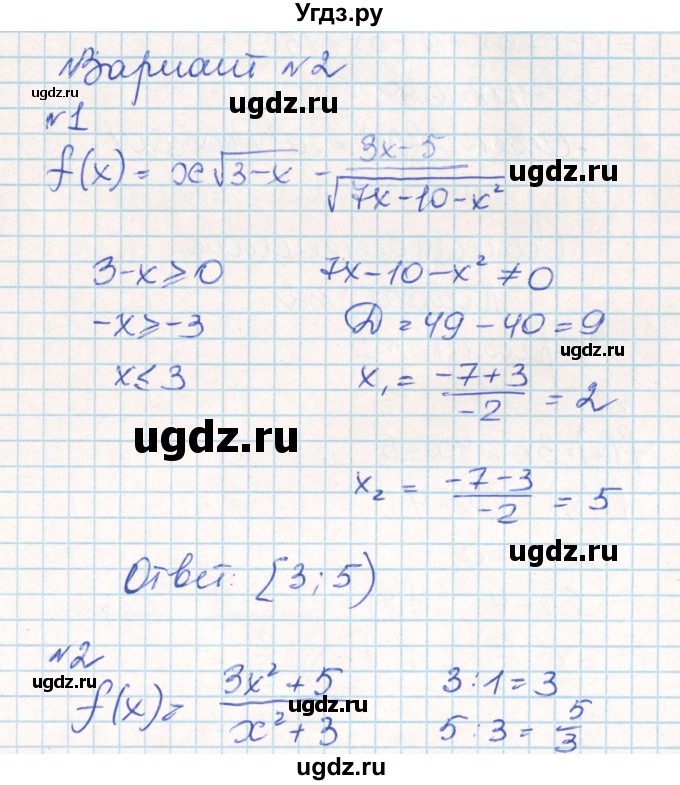 Угдз.ру
Вариант №2
ugdz.ru ugdz.ru
№1
f(x) = x√(3-x) - (3x-5)/√(7x-10-x²) ugdz.ru
3-x ≥ 0 7x-10-x² ≠ 0
-x ≥ -3 D = 49 - 40 = 9
ugdz.ru
x ≤ 3 x₁ = (-7+3)/(-2) = 2
ugdz.ru
x₂ = (-7-3)/(-2) = 5
ugdz.ru
Ответ: [3; 5)
№2
ugdz.ru
f(x) = (3x² + 5)/(x² + 3) 3 : 1 = 3
ugdz.ru
5 : 3 = 5/3
ugdz.ru